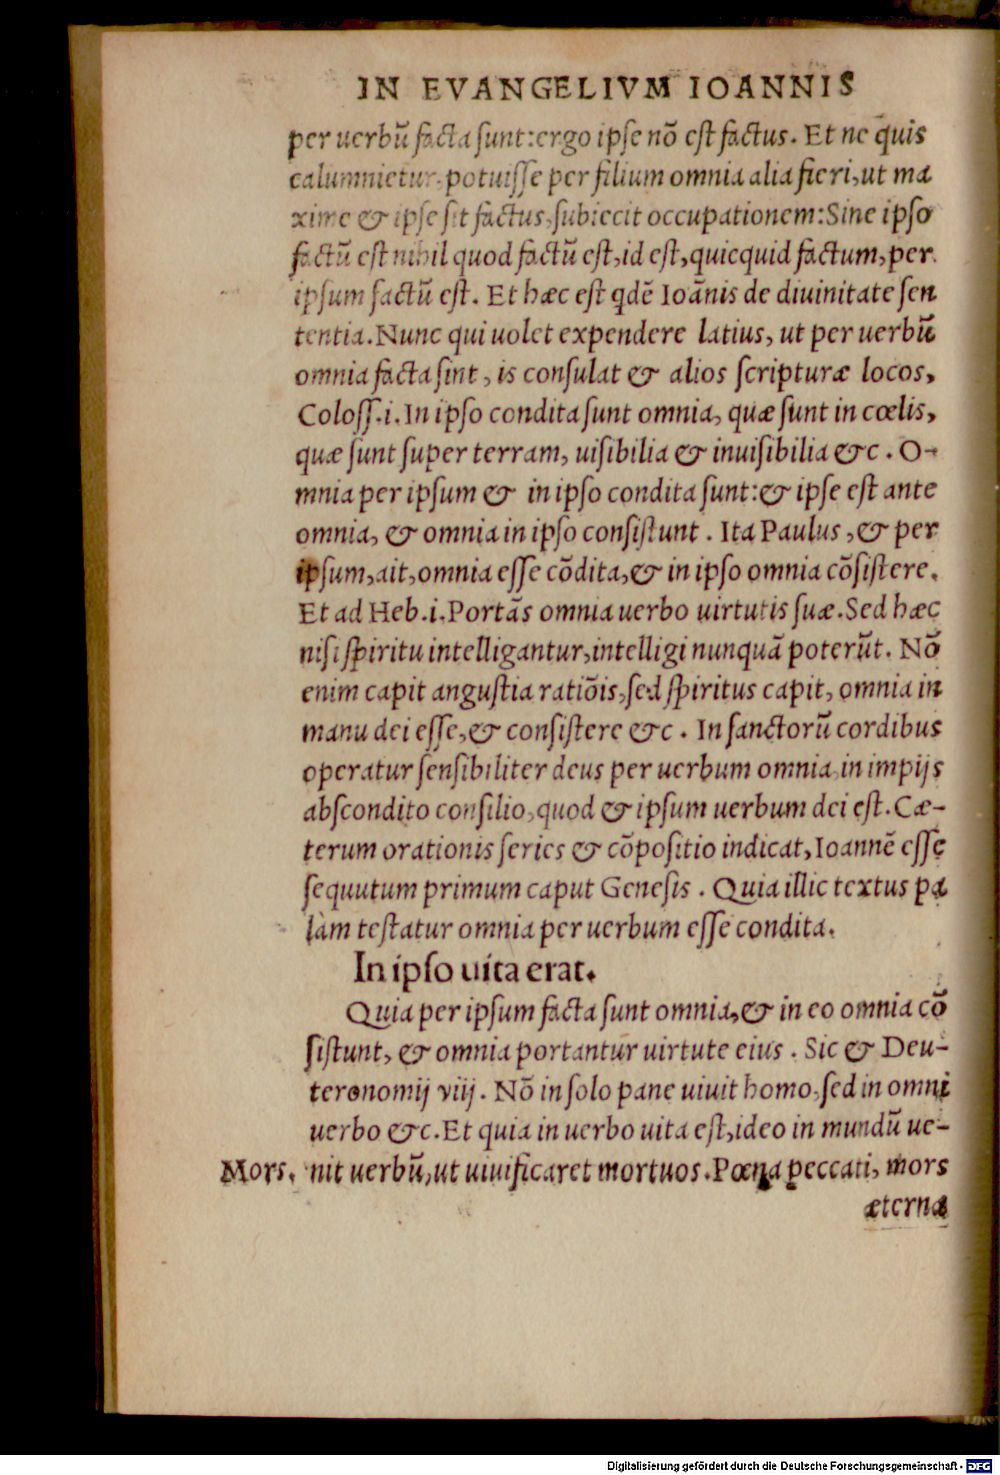 IN EVANGELIVM IOANNIS
per uerbũ facta sunt: ergo ipse nõ est factus. Et ne q̃uis
calumnietur, potuisse per filium omnia alia fieri, ut ma
xime & ipse sit factus, subiecit occupationem: Sine ipso
factũ est nihil quod factũ est, id est, quicquid factum, per
ipsum factũ est. Et hæc est qdẽ Ioãnis de diuinitate sen
tentia. Nunc qui uolet expendere latius, ut per uerbũ
omnia facta sint, is consulat & alios scripturæ locos,
Coloss. i. In ipso condita sunt omnia, quæ sunt in cœlis,
quæ sunt super terram, uisibilia & inuisibilia &c. O-
mnia per ipsum & in ipso condita sunt: & ipse est ante
omnia, & omnia in ipso consistunt. Ita Paulus, & per
ipsum, ait, omnia esse cõdita, & in ipso omnia cõsistere.
Et ad Heb. i. Portãs omnia uerbo uirtutis suæ. Sed hæc
nisi spiritu intelligantur, intelligi nunquã poterũt. Nõ
enim capit angustia ratiõis, sed spiritus capit, omnia in
manu dei esse, & consistere &c. In sanctorũ cordibus
operatur sensibiliter deus per uerbum omnia, in impijs
abscondito consilio, quod & ipsum uerbum dei est. Cæ-
terum orationis series & cõpositio indicat, Ioannẽ esse
sequutum primum caput Genesis. Quia illic textus pa
làm testatur omnia per uerbum esse condita.
In ipso uita erat.
Quia per ipsum facta sunt omnia, & in eo omnia cõ
sistunt, & omnia portantur uirtute eius. Sic & Deu-
teronomij viij. Nõ in solo pane uiuit homo, sed in omni
uerbo &c. Et quia in uerbo uita est, ideo in mundũ ue-
Mors. nit uerbũ, ut uiuificaret mortuos. Pœna peccati, mors
æterna
Digitalisierung gefördert durch die Deutsche Forschungsgemeinschaft - DFG